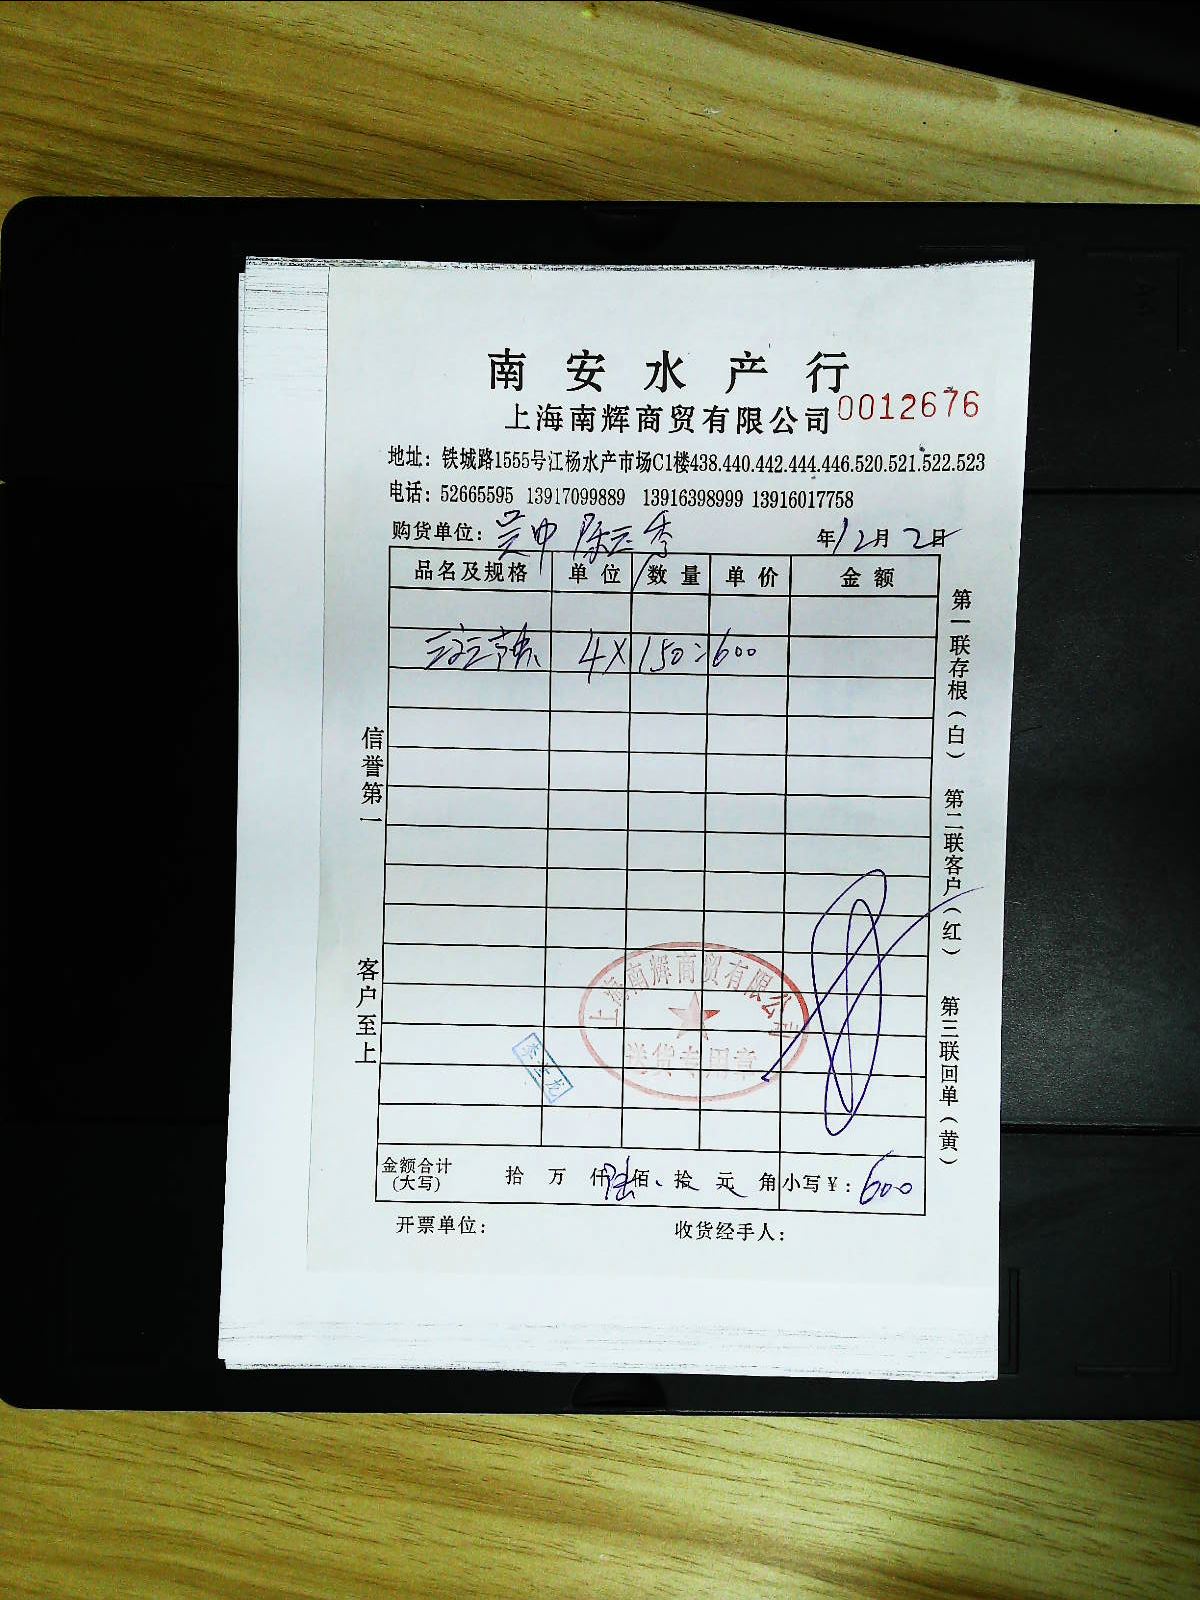 南安水产行
上海南辉商贸有限公司 0012676
地址：铁城路1555号江杨水产市场C1楼438.440.442.444.446.520.521.522.523
电话：52665595 13917099889 13916398999 13916017758
购货单位：吴中 年12月2日
品名及规格 单位 数量 单价 金额
4×150=600
信誉第一 客户至上
第一联存根（白） 第二联客户（红） 第三联回单（黄）
上海南辉商贸有限公司
送货专用章
金额合计（大写） 拾 万 仟陆佰 拾 元 角 小写￥：600
开票单位： 收货经手人：